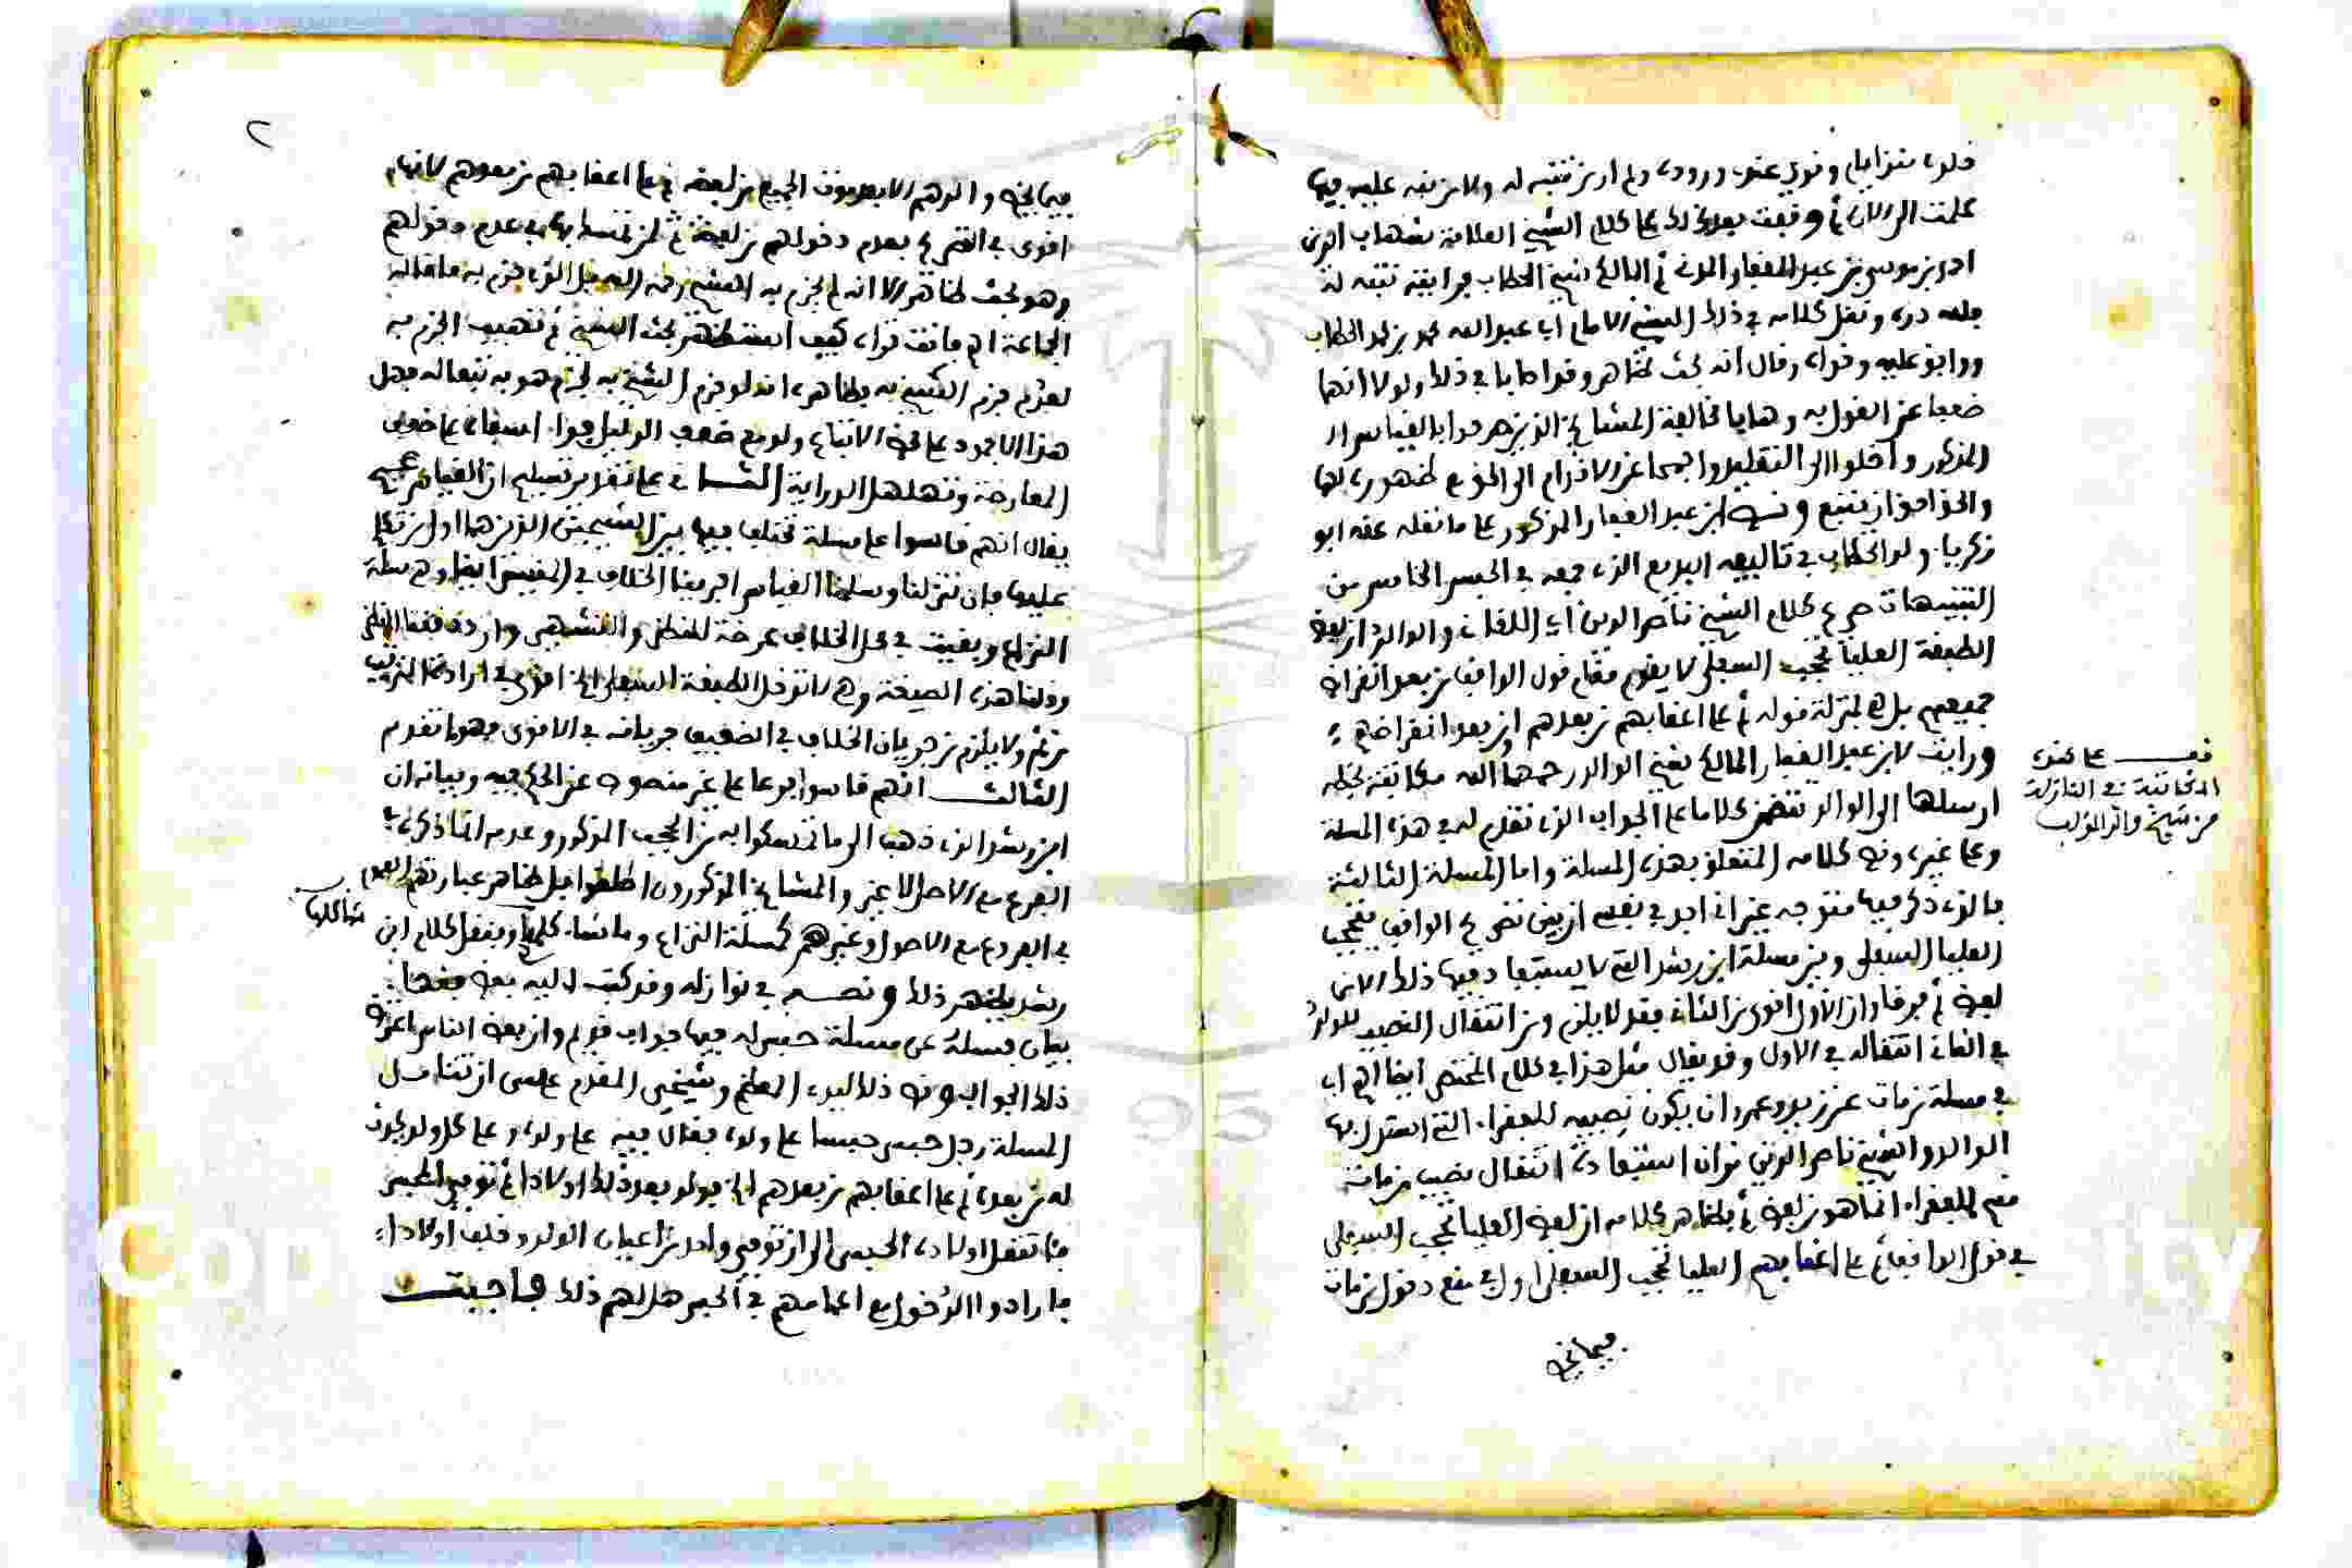 علمت الى الان ثم وقفت بعد ذلك على كلام الشيخ العلامة شهاب الدين
احمد بن موسى بن عبد الغفار المالكي شيخ الحطاب فرايته تنبه له
فلله دره ونقل كلامه في ذلك الشيخ الامام ابا عبد الله محمد بن محمد الحطاب
ووافق عليه وقواه وقال انه بحث ظاهر
ضعفا عن القول به وهابا مخالفة المشايخ الذين صرحوا بالقياس
المذكور واخلدوا الى التقليد واحجما عن الاقدام الى الحق مع ظهوره لهما
والحق احق ان يتبع ونص ابن عبد الغفار المذكور على ما نقله عنه ابو
زكرياء ولد الحطاب في تاليفه البديع الذي جمعه في الحبس الخامس من
التنبيهات صرح كلام الشيخ ناصر الدين اي اللقاني والوالد ان لفظ
الطبقة العليا تحجب السفلى لا يقوم مقام قول الواقف من بعد انقراض
جميعهم بل هي بمنزلة قوله ثم على اعقابهم من بعدهم او من بعد انقراضهم
ورايت لابن عبد الغفار المالكي شيخ الوالد رحمهما الله مكاتبة بخطه
ارسلها الى الوالد تتضمن كلاما على الجواب الذي تقدم له في هذه المسلة
وعلى غيره ونص كلامه المتعلق بهذه المسلة واما المسلة الثالثة
فالذي ذكر فيها متوجه غير اني اجد في نفسي ان بين تصريح الواقف بتحجب
العليا السفلى وبين مسلة ابن رشد التي لا يستفاد فيها ذلك الا من
لفظ ثم فرقا وان الاول اقوى من الثاني فقد لا يلزم من انتقال النصيب للولد
في الثاني انتقاله في الاول وقد يقال مثل هذا في كلام المختصر ايضا اهـ اي
في مسلة من مات عن زيد وعمرو ان يكون نصيبه للفقراء التي استدل بها
الوالد والشيخ ناصر الدين فان استفادة انتقال نصيب من مات
منهم للفقراء انما هو من لفظ ثم فظاهر كلامه ان لفظ العليا تحجب السفلى
في قول الواقف ثم على اعقابهم العليا تحجب السفلى اولى في منع دخول من مات
فيما نحن
قف على هذه
المكاتبة في النازلة
من شيخ والد المؤلف
٢
اقوى في التصريح بعدم دخولهم من لفظة ثم
وهو بحث ظاهر الا انه لم يجزم به الشيخ رحمه الله بل الذي جزم به ما قاله
الجماعة اهـ فانت تراه كيف استظهر بحث الشيخ ثم تهيب الجزم به
لعدم جزم الشيخ به فظاهره انه لو جزم الشيخ به لجزم هو به تبعا له فهل
هذا الا جمود على محض الاتباع ولو مع ضعف الدليل
المعارضة وتهلهل الدراية الثاني على تقدير تسليم ان القياس صحيح
يقال انهم قاسوا على مسلة مختلف فيها بين الشيخين الذين هما اول من تكلم
عليها فان تنزلنا وسلمنا القياس اجرينا الخلاف في المقيس ايضا وهي مسلة
النزاع وبقيت في محل الخلاف عرضة للنظر والتشهير وان دققنا النظر
وقلنا هذه الصيغة وهي لا تدخل الطبقة السفلى الخ اقوى في ارادة الترتيب
من ثم ولا يلزم من جريان الخلاف في الضعيف جريانه في الاقوى فهو ما تقدم
الثالث انهم قاسوا فرعا على غير منصوص عن الحكم فيه وبيانه ان
ابن رشد الذي ذهب الى ما تمسكوا به من الحجب المذكور وعدمه انما ذكره في
الفرع مع الاصل لا غير والمشايخ المذكورون اطلقوا بل ظاهر عبارتهم
في الفروع مع الاصول وغيرهم كمسلة النزاع وما شاكلها وبنقل كلام ابن
شاكلها
رشد يظهر ذلك ونصه في نوازله وقد كتب اليه بعض فقهاء
بيان فسئل عن مسلة حبس له فيها جواب قديم وان بعض الناس اعترض
ذلك الجواب ونص ذلك لسيدي المعظم وشيخي المقدم عسى ان تتامل
المسلة رجل حبس حبسا على ولده فقال فيه على ولده وعلى كل ولد يكون
له من بعده ثم على اعقابهم من بعدهم الخ فولد بعد ذلك اولادا ثم توفي المحبس
فاستغل اولاده الحبس الى ان توفي واحد من اعيان الولد وخلف اولادا
فارادوا الدخول مع اعمامهم في الحبس هل لهم ذلك فاجبت